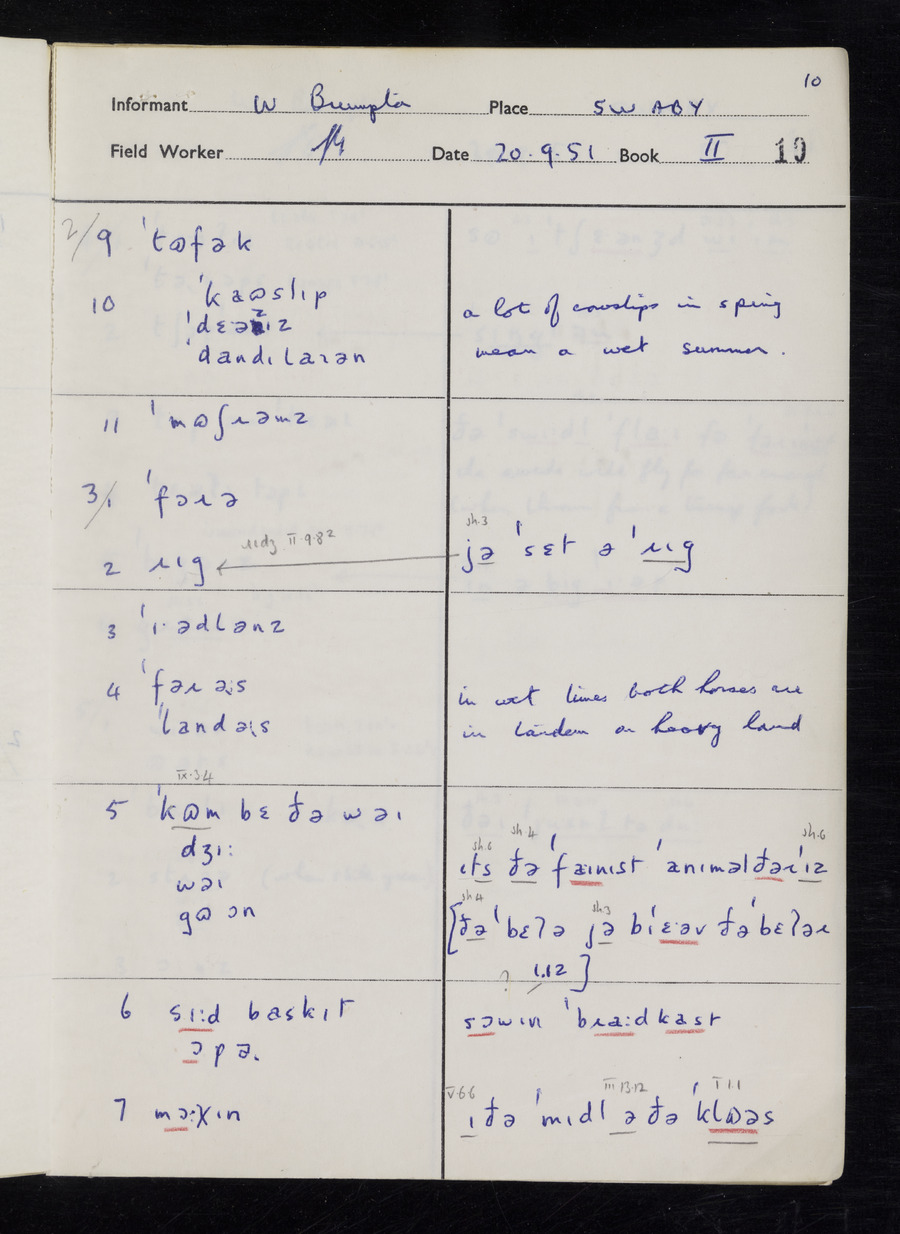 10
Informant W Brumpton Place SWABY
Field Worker Date 20.9.51 Book II 19
2/9 ˈtɷfək
10 ˈkaɷslɪp
ˈdɛəzɪz
dandɪlaɪən
a lot of cowslips in spring
mean a wet summer.
11 ˈmɷʃɹəmz
3/1 ˈfəɹə
2 ɹɪg
ɹɪdʒ II.9.8²
sh.3
jə ˈsɛt ə ˈɹɪg
3 ˈɪ·ədlənz
4 ˈfəɹ əːs
ˈlandəːs
in wet times both horses are
in tandem on heavy land
IX.3.4
5 ˈkɷm bɛ ðə wəɪ
dʒɪː
wəɪ
gɷ ɔn
sh.6 sh.4 sh.6
ɪts ðə ˈfaɪnɪst ˈanɪməl ðəɹ ɪz
sh.4 sh.3
[ðə ˈbɛʔə jə bɪˈɛəv ðə bɛʔəɹ
? ɪ.ɪz ]
6 sɪːd baskɪt
ɔpə.
səwɪn ˈbɹaːdkast
7 məːχɪn
V.6.6 III.13.12 I.1.1
ɪ ðə ˈmɪdl ə ðə ˈklɷəs